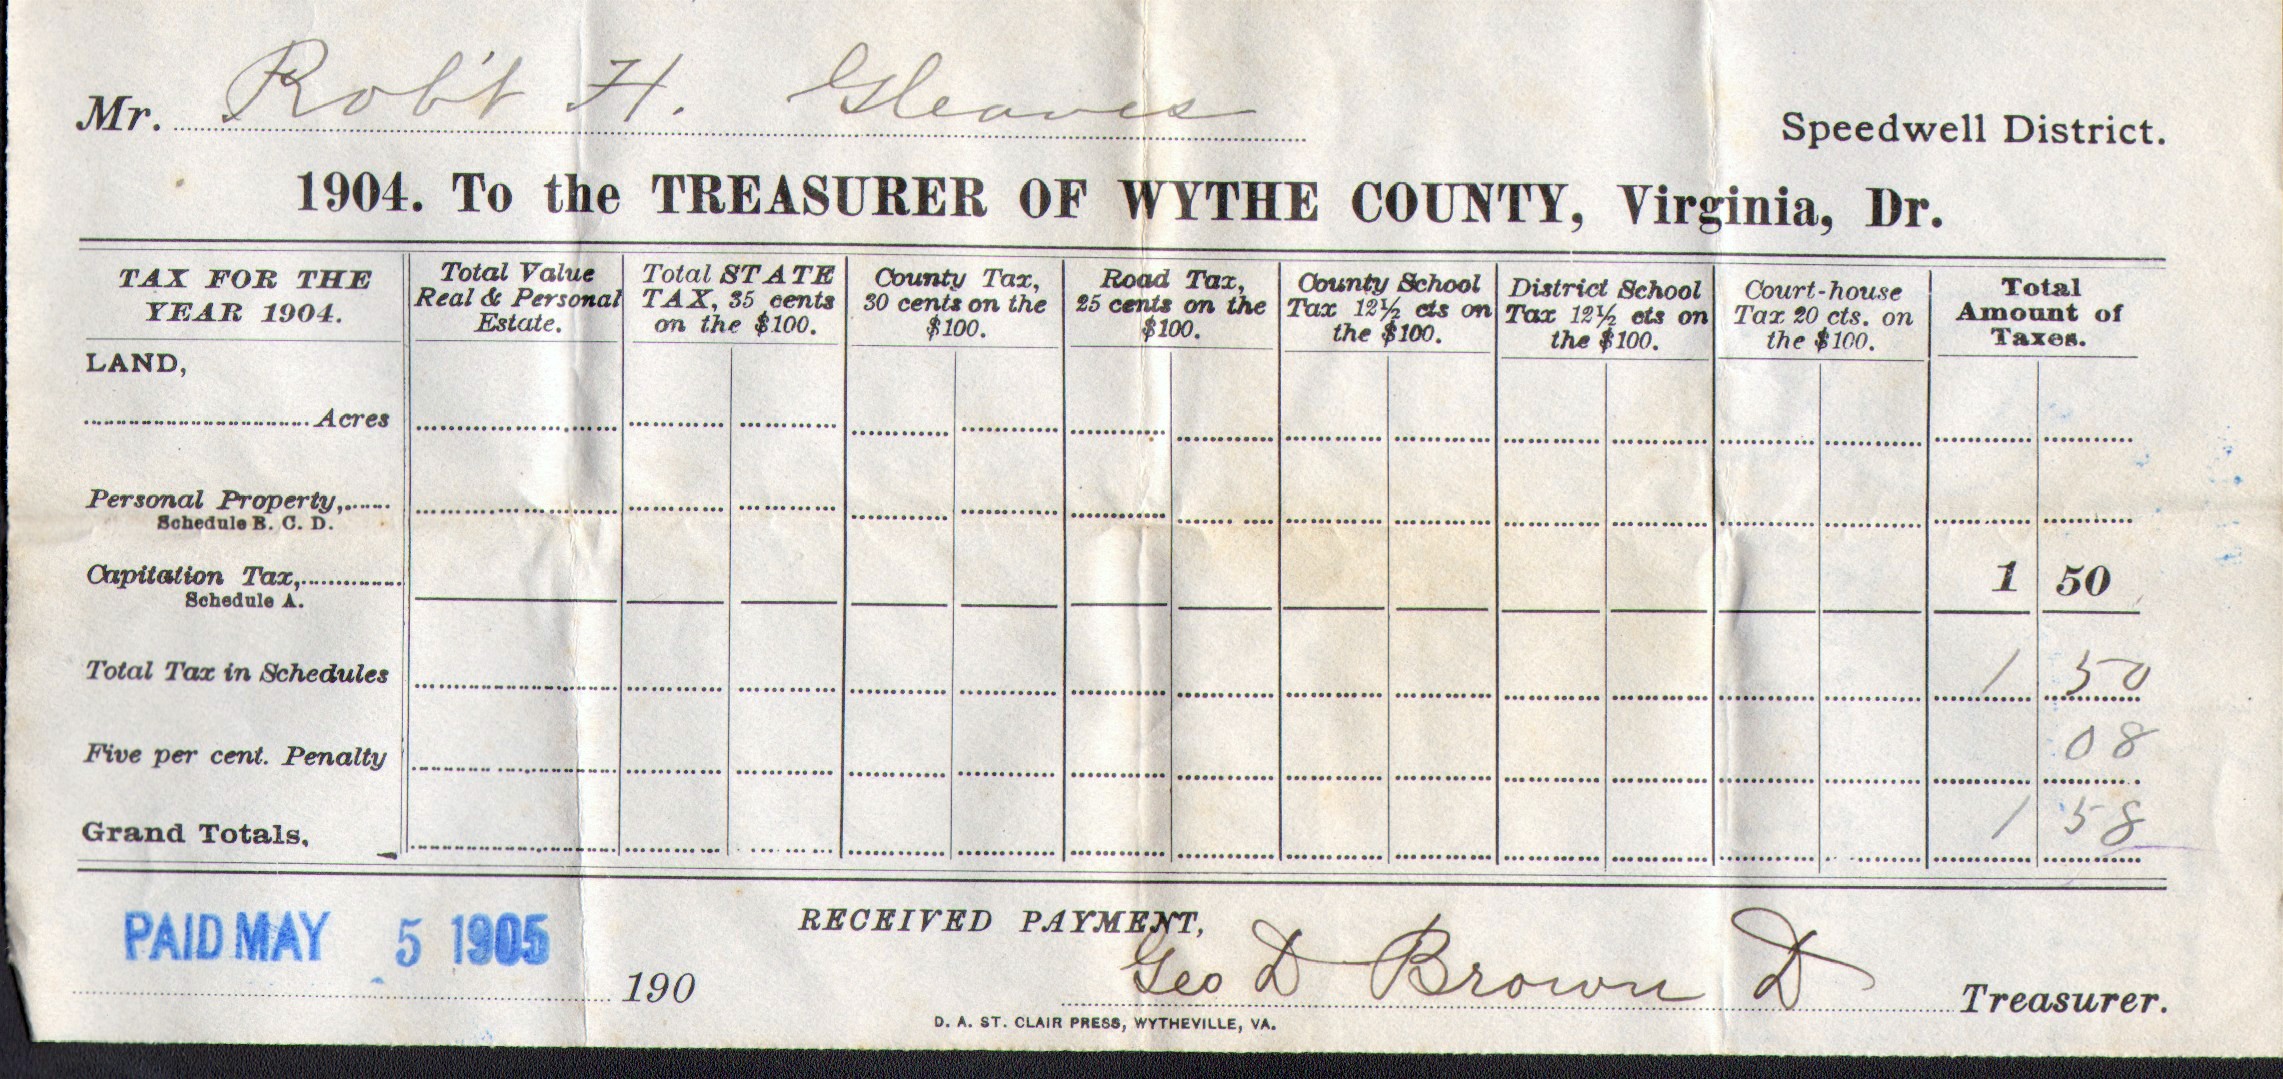 Mr. Rob't H. Gleaves
Speedwell District.
1904. To the TREASURER OF WYTHE COUNTY, Virginia, Dr.
TAX FOR THE YEAR 1904.
Total Value Real & Personal Estate.
Total STATE TAX, 35 cents on the $100.
County Tax, 30 cents on the $100.
Road Tax, 25 cents on the $100.
County School Tax 12½ cts on the $100.
District School Tax 12½ cts on the $100.
Court-house Tax 20 cts. on the $100.
Total Amount of Taxes.
LAND,
Acres
Personal Property,
Schedule B. C. D.
Capitation Tax, 1 50
Schedule A.
Total Tax in Schedules 1 50
Five per cent. Penalty 08
Grand Totals. 1 58
PAID MAY 5 1905
RECEIVED PAYMENT,
190
Geo D Brown D Treasurer.
D. A. ST. CLAIR PRESS, WYTHEVILLE, VA.